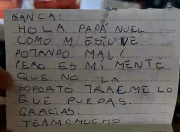 HOLA PAPÁ NUEL
COMO M ESTUVE
POTANDO MAL!
PERO ES MI MENTE
QUE NO LA
SOPORTO TRAEME LO
QUE PUEDAS.
GRACIAS.
TEAMO MUCHO